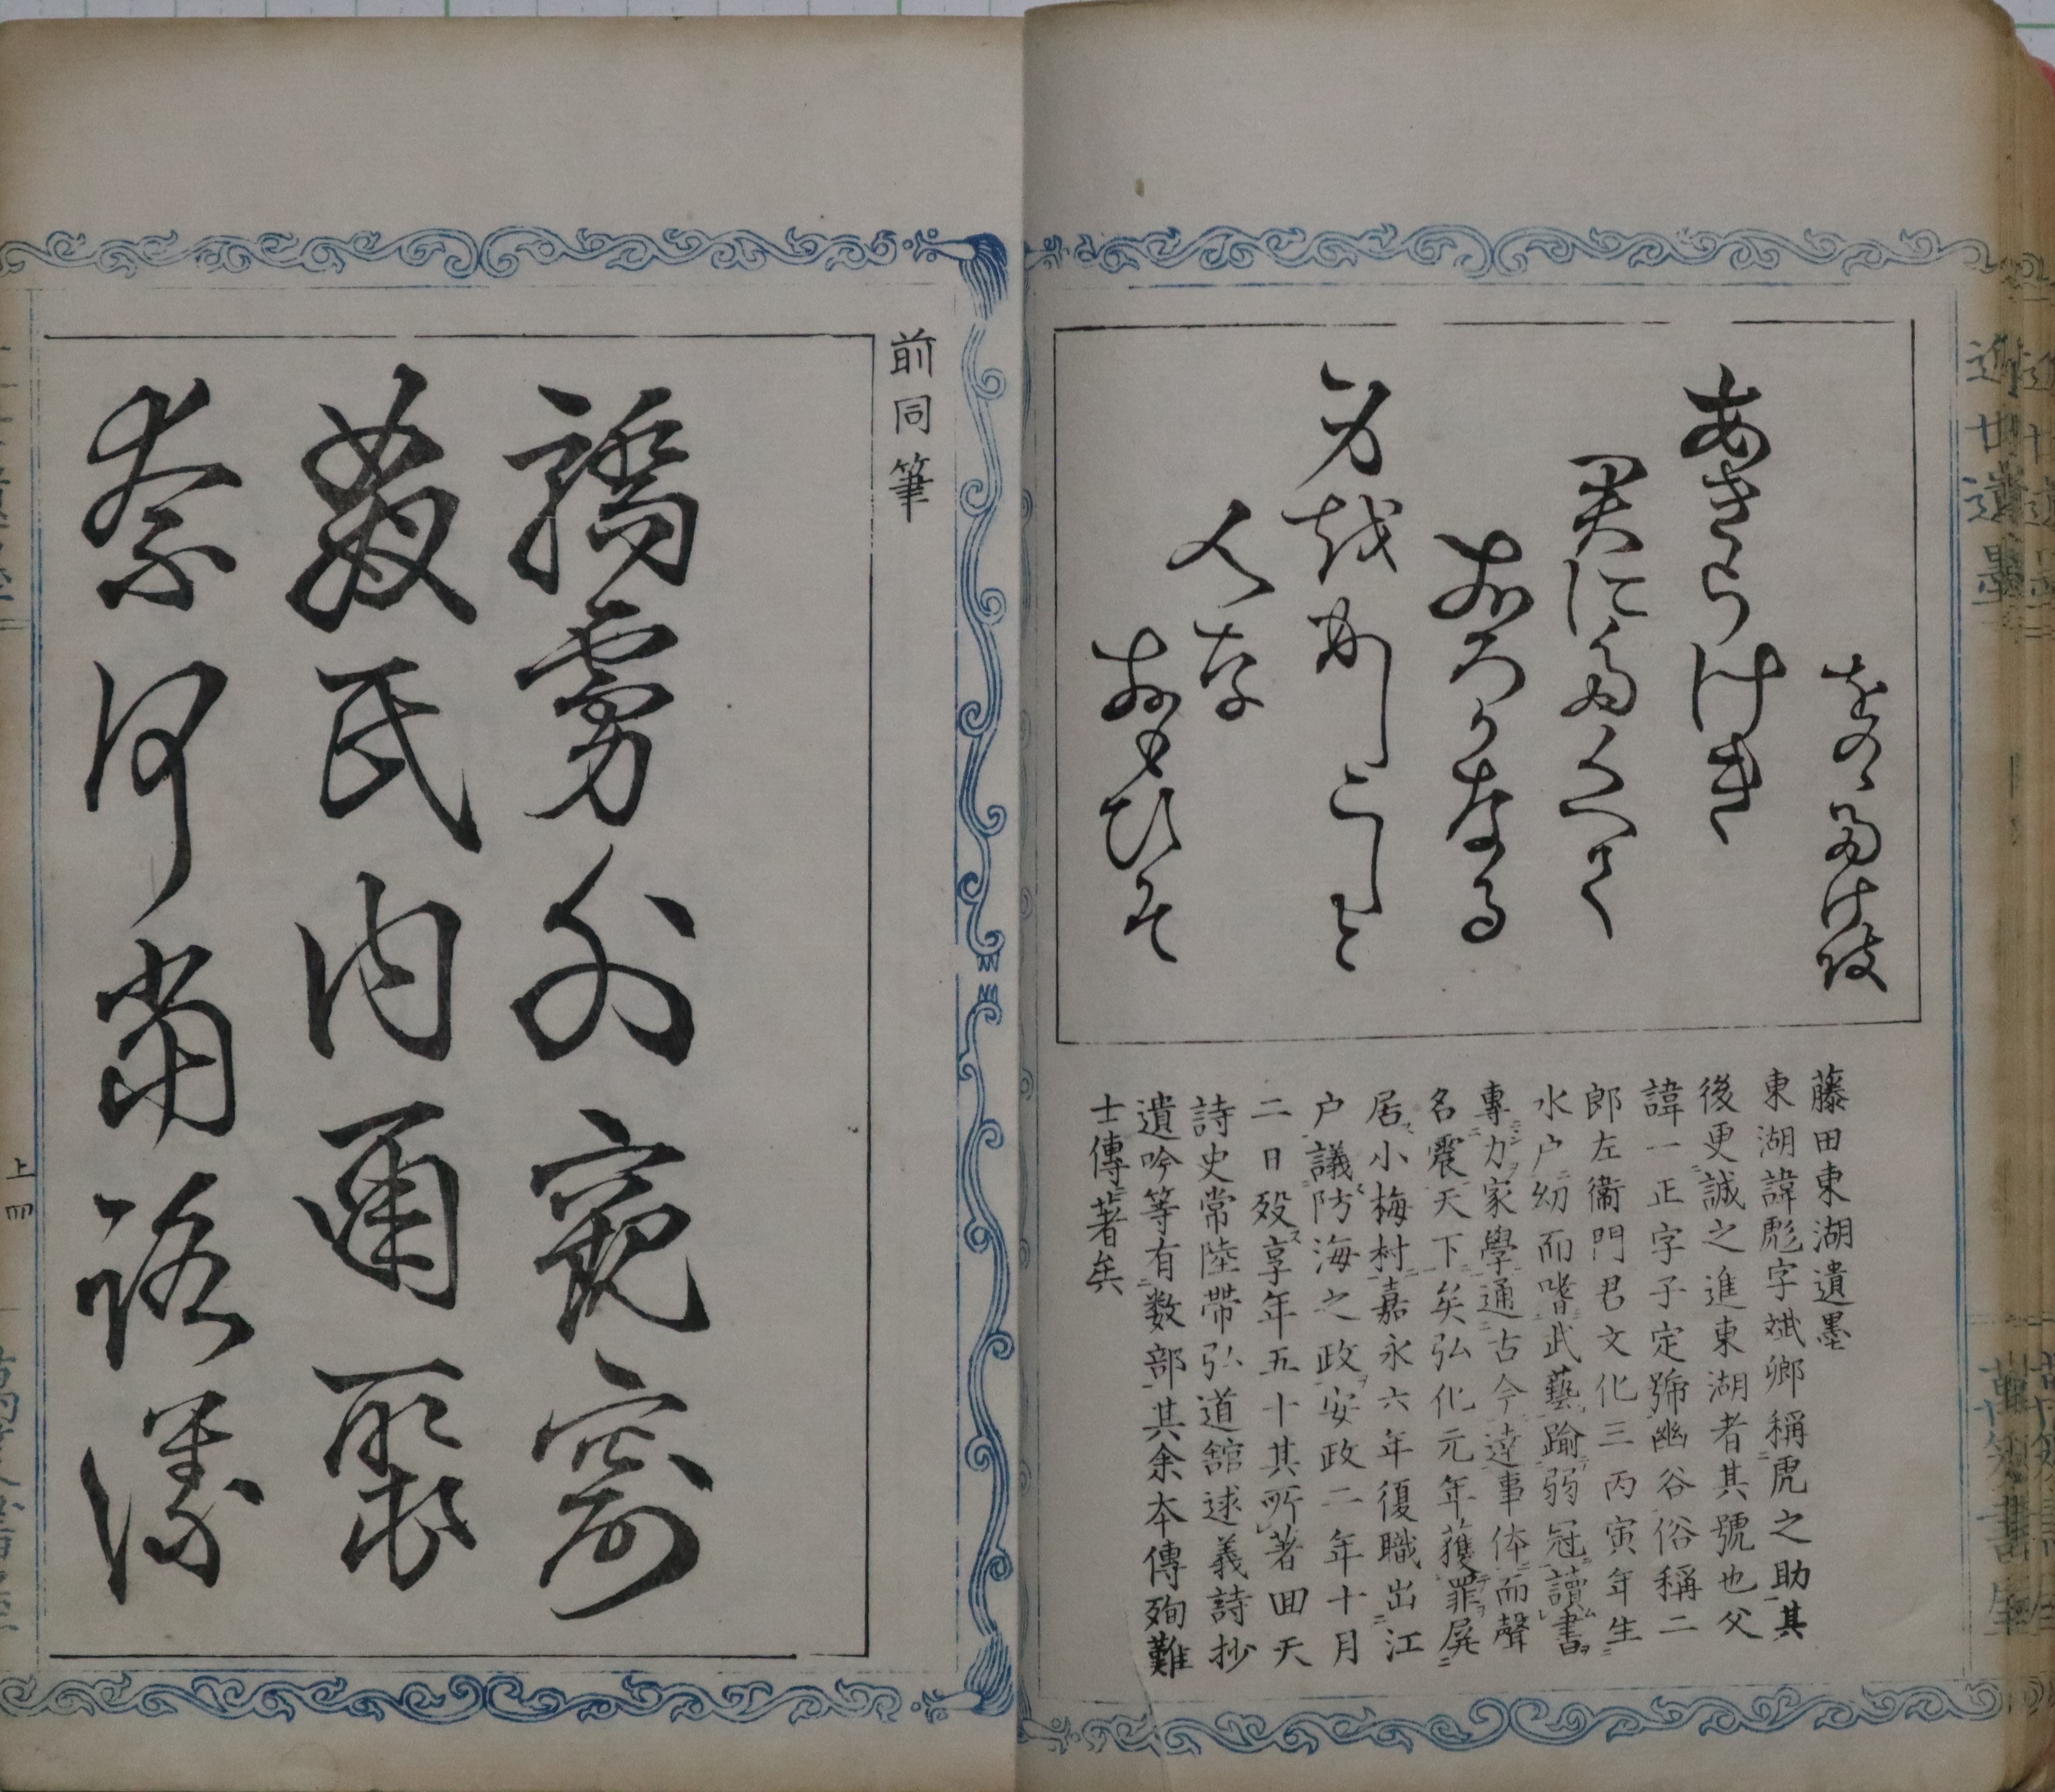 近世遺墨
たのたけき
あきらけき
君につかへて
おろかなる
身越おしこしと
人な
おもひそ
藤田東湖遺墨
東湖諱彪字斌卿稱虎之助其
後更誠之進東湖者其號也父
諱一正字子定號幽谷俗稱二
郎左衞門君文化三丙寅年生
水户幼而嗜武藝踰弱冠讀書
專力家學通古今達事体而聲
名震天下矣弘化元年獲罪屏
居小梅村嘉永六年復職出江
户議防海之政安政二年十月
二日殁享年五十其所著回天
詩史常陸帶弘道舘述義詩抄
遺吟等有数部其余本傳殉難
士傳著矣
前同筆
驕虜外窺窬
黎民内
奈何當路
上四